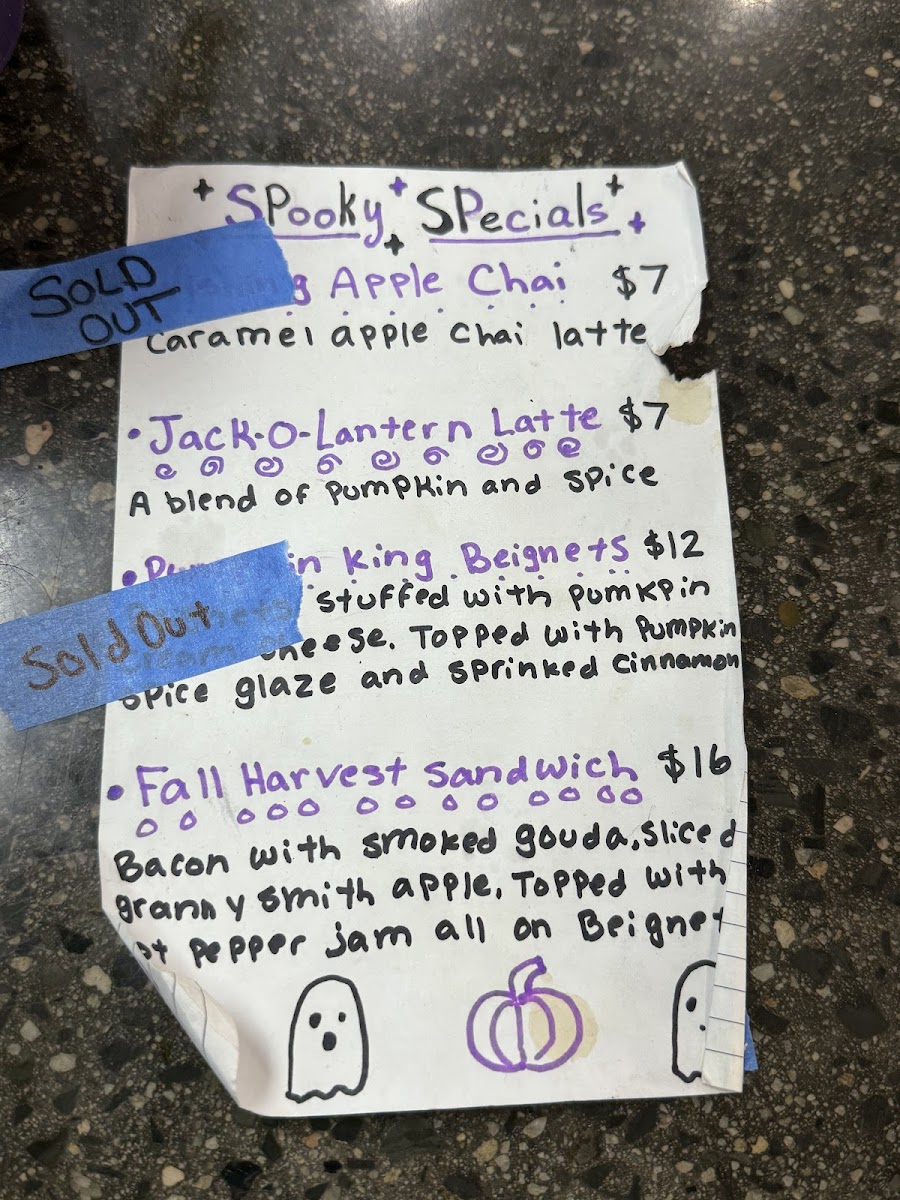 SPooky SPecials
SOLD
OUT
Apple Chai $7
Caramel apple chai latte
• Jack-O-Lantern Latte $7
A blend of pumpkin and spice
• King Beignets $12
Sold Out
stuffed with pumkpin
cheese. Topped with pumpkin
spice glaze and sprinked cinnamon
• Fall Harvest sandwich $16
Bacon with smoked gouda, sliced
granny smith apple, Topped with
pepper jam all on Beignet